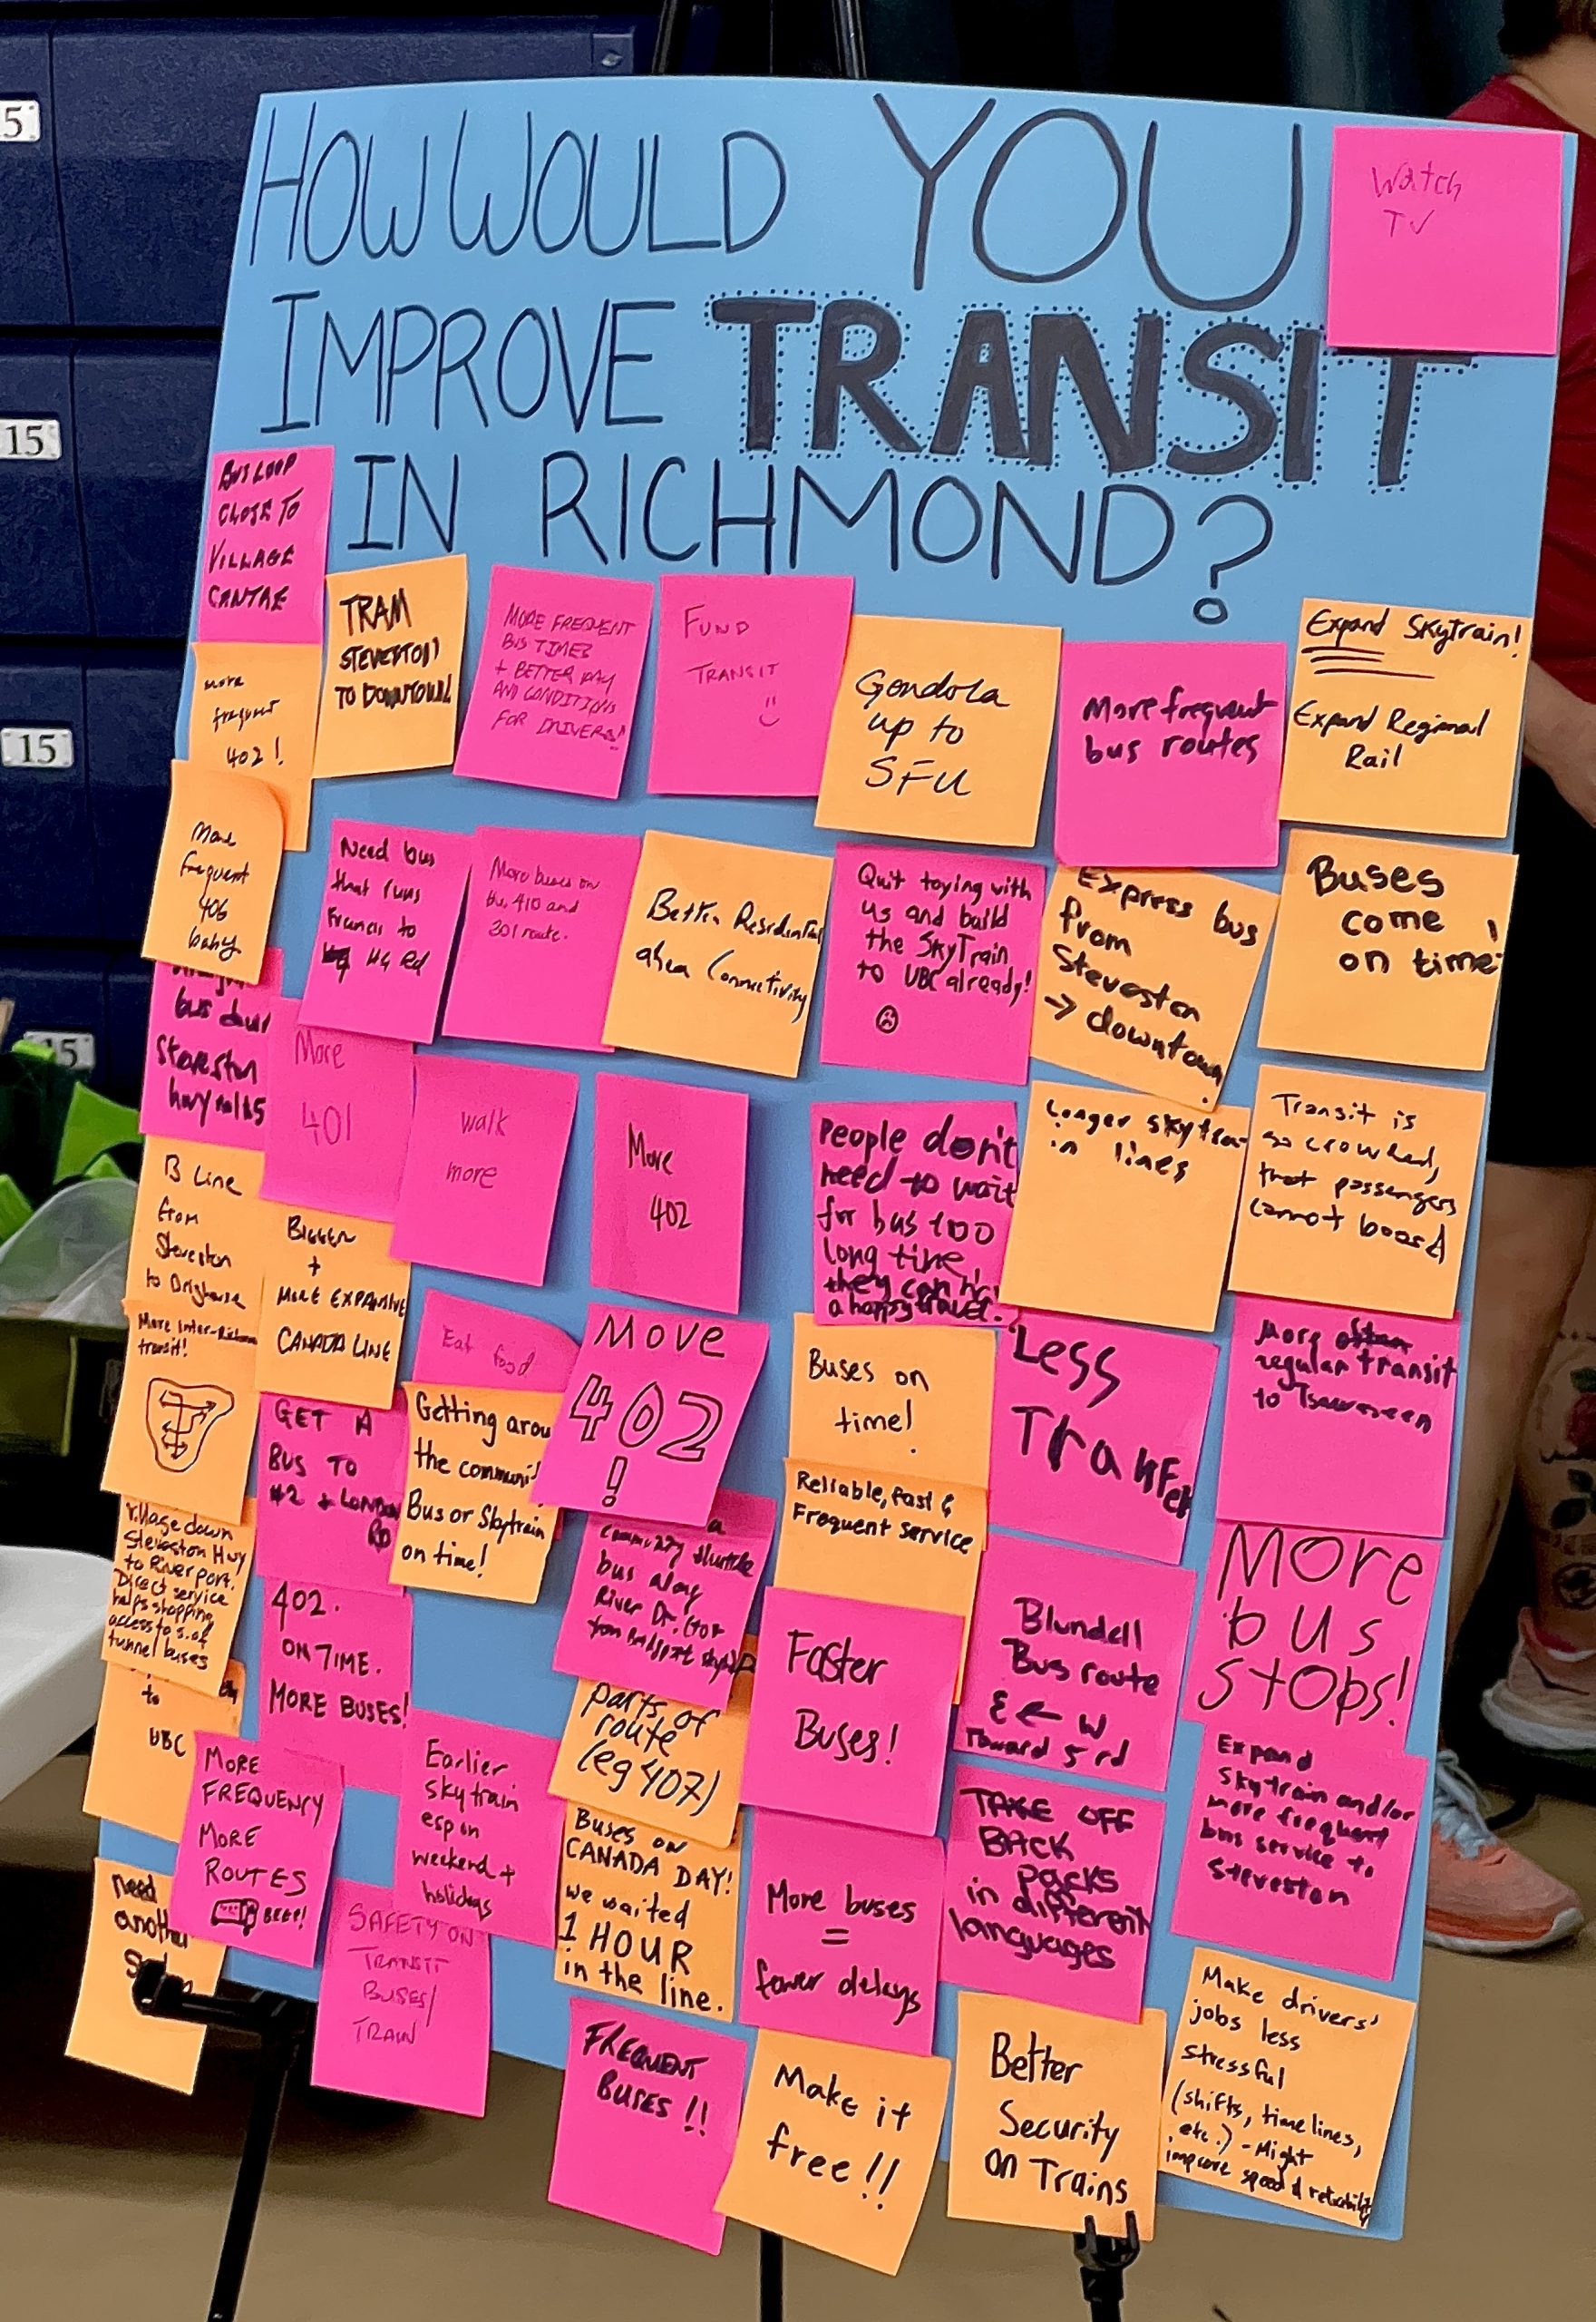 15
15
15
15
HOW WOULD YOU
IMPROVE TRANSIT
IN RICHMOND?
Watch
TV
BUS LOOP
CLOSE TO
VILLAGE
CENTRE
TRAM
STEVESTON
TO DOWNTOWN
MORE FREQUENT
BUS TIMES
+ BETTER PAY
AND CONDITIONS
FOR DRIVERS!
FUND
TRANSIT
Gondola
up to
SFU
More frequent
bus routes
Expand Skytrain!
Expand Regional
Rail
more
frequent
402!
More
frequent
406
baby
Need bus
that runs
Francis to
#4 Rd
More buses on
the 410 and
301 route.
Better Residential
area Connectivity
Quit toying with
us and build
the SkyTrain
to UBC already!
Express bus
from
Steveston
→ downtown.
Buses
come
on time!
bus down
Steveston
hwy
More
401
walk
more
More
402
People don't
need to wait
for bus too
long time
they can
a happy travel.
Longer skytra
in lines
Transit is
so crowded,
that passengers
cannot board
B Line
from
Steveston
to Brighouse
BIGGER
+
MORE EXPANSIVE
CANADA LINE
Eat food
MOVE
402
!
Buses on
time!
Less
Tranfer
More often
regular transit
to Tsawassen
More Inter-Richmond
transit!
GET A
BUS TO
#2 + LONDON
RD
Getting arou
the communi
Bus or Skytrain
on time!
Reliable, fast &
Frequent service
a
community shuttle
bus along
River Dr.
Village down
Steveston Hwy
to Riverport.
Direct service
helps shopping
access to s. of
tunnel buses
402.
ON TIME.
MORE BUSES!
Faster
Buses!
Blundell
Bus route
E ← W
Toward 5 rd
More
bus
stops!
to
UBC
MORE
FREQUENCY
MORE
ROUTES
BEEP!
Earlier
skytrain
esp on
weekend +
holidays
parts of
route
(eg 407)
Buses on
CANADA DAY!
we waited
1 HOUR
in the line.
More buses
=
fewer delays
TAKE OFF
BACK
packs
in different
languages
Expand
Skytrain and/or
more frequent
bus service to
Steveston
need
another
SAFETY ON
TRANSIT
BUSES/
TRAIN
FREQUENT
BUSES!!
Make it
free!!
Better
Security
on Trains
Make drivers'
jobs less
stressful
(shifts, timelines,
etc.) - Might
improve speed & reliability